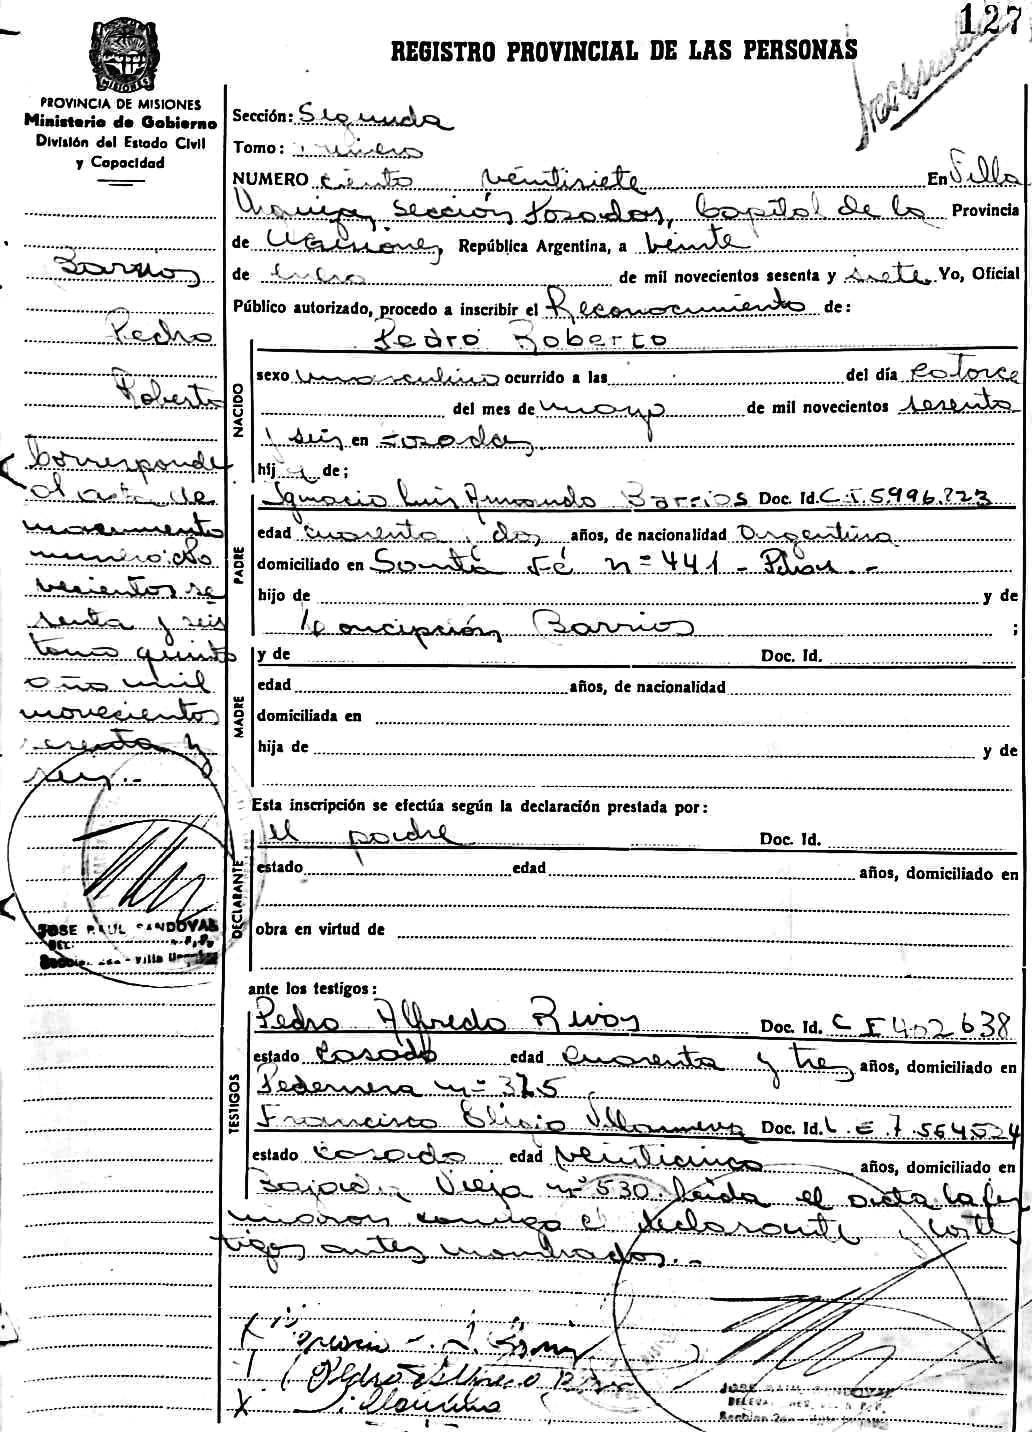 127
REGISTRO PROVINCIAL DE LAS PERSONAS
MISIONES
PROVINCIA DE MISIONES
Ministerio de Gobierno
División del Estado Civil
y Capacidad
Barrios
Pedro
Roberto
Corresponde
al acta de
nacimiento
numero: No
vecientos se
senta y seis
tomo quinto
año mil
novecientos
sesenta y
seis.-
JOSE RAUL SANDOVAL
Sección: Segunda
Tomo: Primero
NUMERO ciento veintisiete En Villa
Urquiza, Sección Posadas, Capital de la Provincia
de Misiones, República Argentina, a veinte
de enero de mil novecientos sesenta y siete Yo, Oficial
Público autorizado, procedo a inscribir el Reconocimiento de:
NACIDO
Pedro Roberto
sexo masculino ocurrido a las del día catorce
del mes de mayo de mil novecientos sesenta
y seis en Posadas,
hij o de;
PADRE
Ignacio Luis Armando Barrios Doc. Id. C.I 5.996.223
edad cuarenta y dos años, de nacionalidad Argentina
domiciliado en Santa Fé nº 441 -
hijo de y de
Concepción Barrios ;
MADRE
y de Doc. Id.
edad años, de nacionalidad
domiciliada en
hija de y de
Esta inscripción se efectúa según la declaración prestada por:
DECLARANTE
el padre Doc. Id.
estado edad años, domiciliado en
obra en virtud de
ante los testigos:
TESTIGOS
Pedro Alfredo Rivas Doc. Id. C I 402638
estado casado edad cuarenta y tres años, domiciliado en
Pedernera nº 375
Francisco Eligio Villanueva Doc. Id. L.E 7.564.524
estado casado edad veinticinco años, domiciliado en
Bajada Vieja nº 530. Leida el acta la fir
maron conmigo el declarante y los tes
tigos antes nombrados.-
JOSE RAUL SANDOVAL